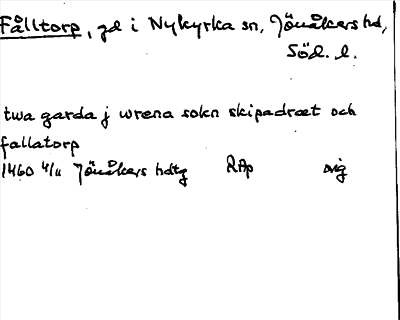 Fålltorp, gd i Nykyrka sn, Jönåkers hd,
Söd. l.
twa garda j wrena sokn skipadræt och
fallatorp
1460 4/11 Jönåkers hdtg RAp orig